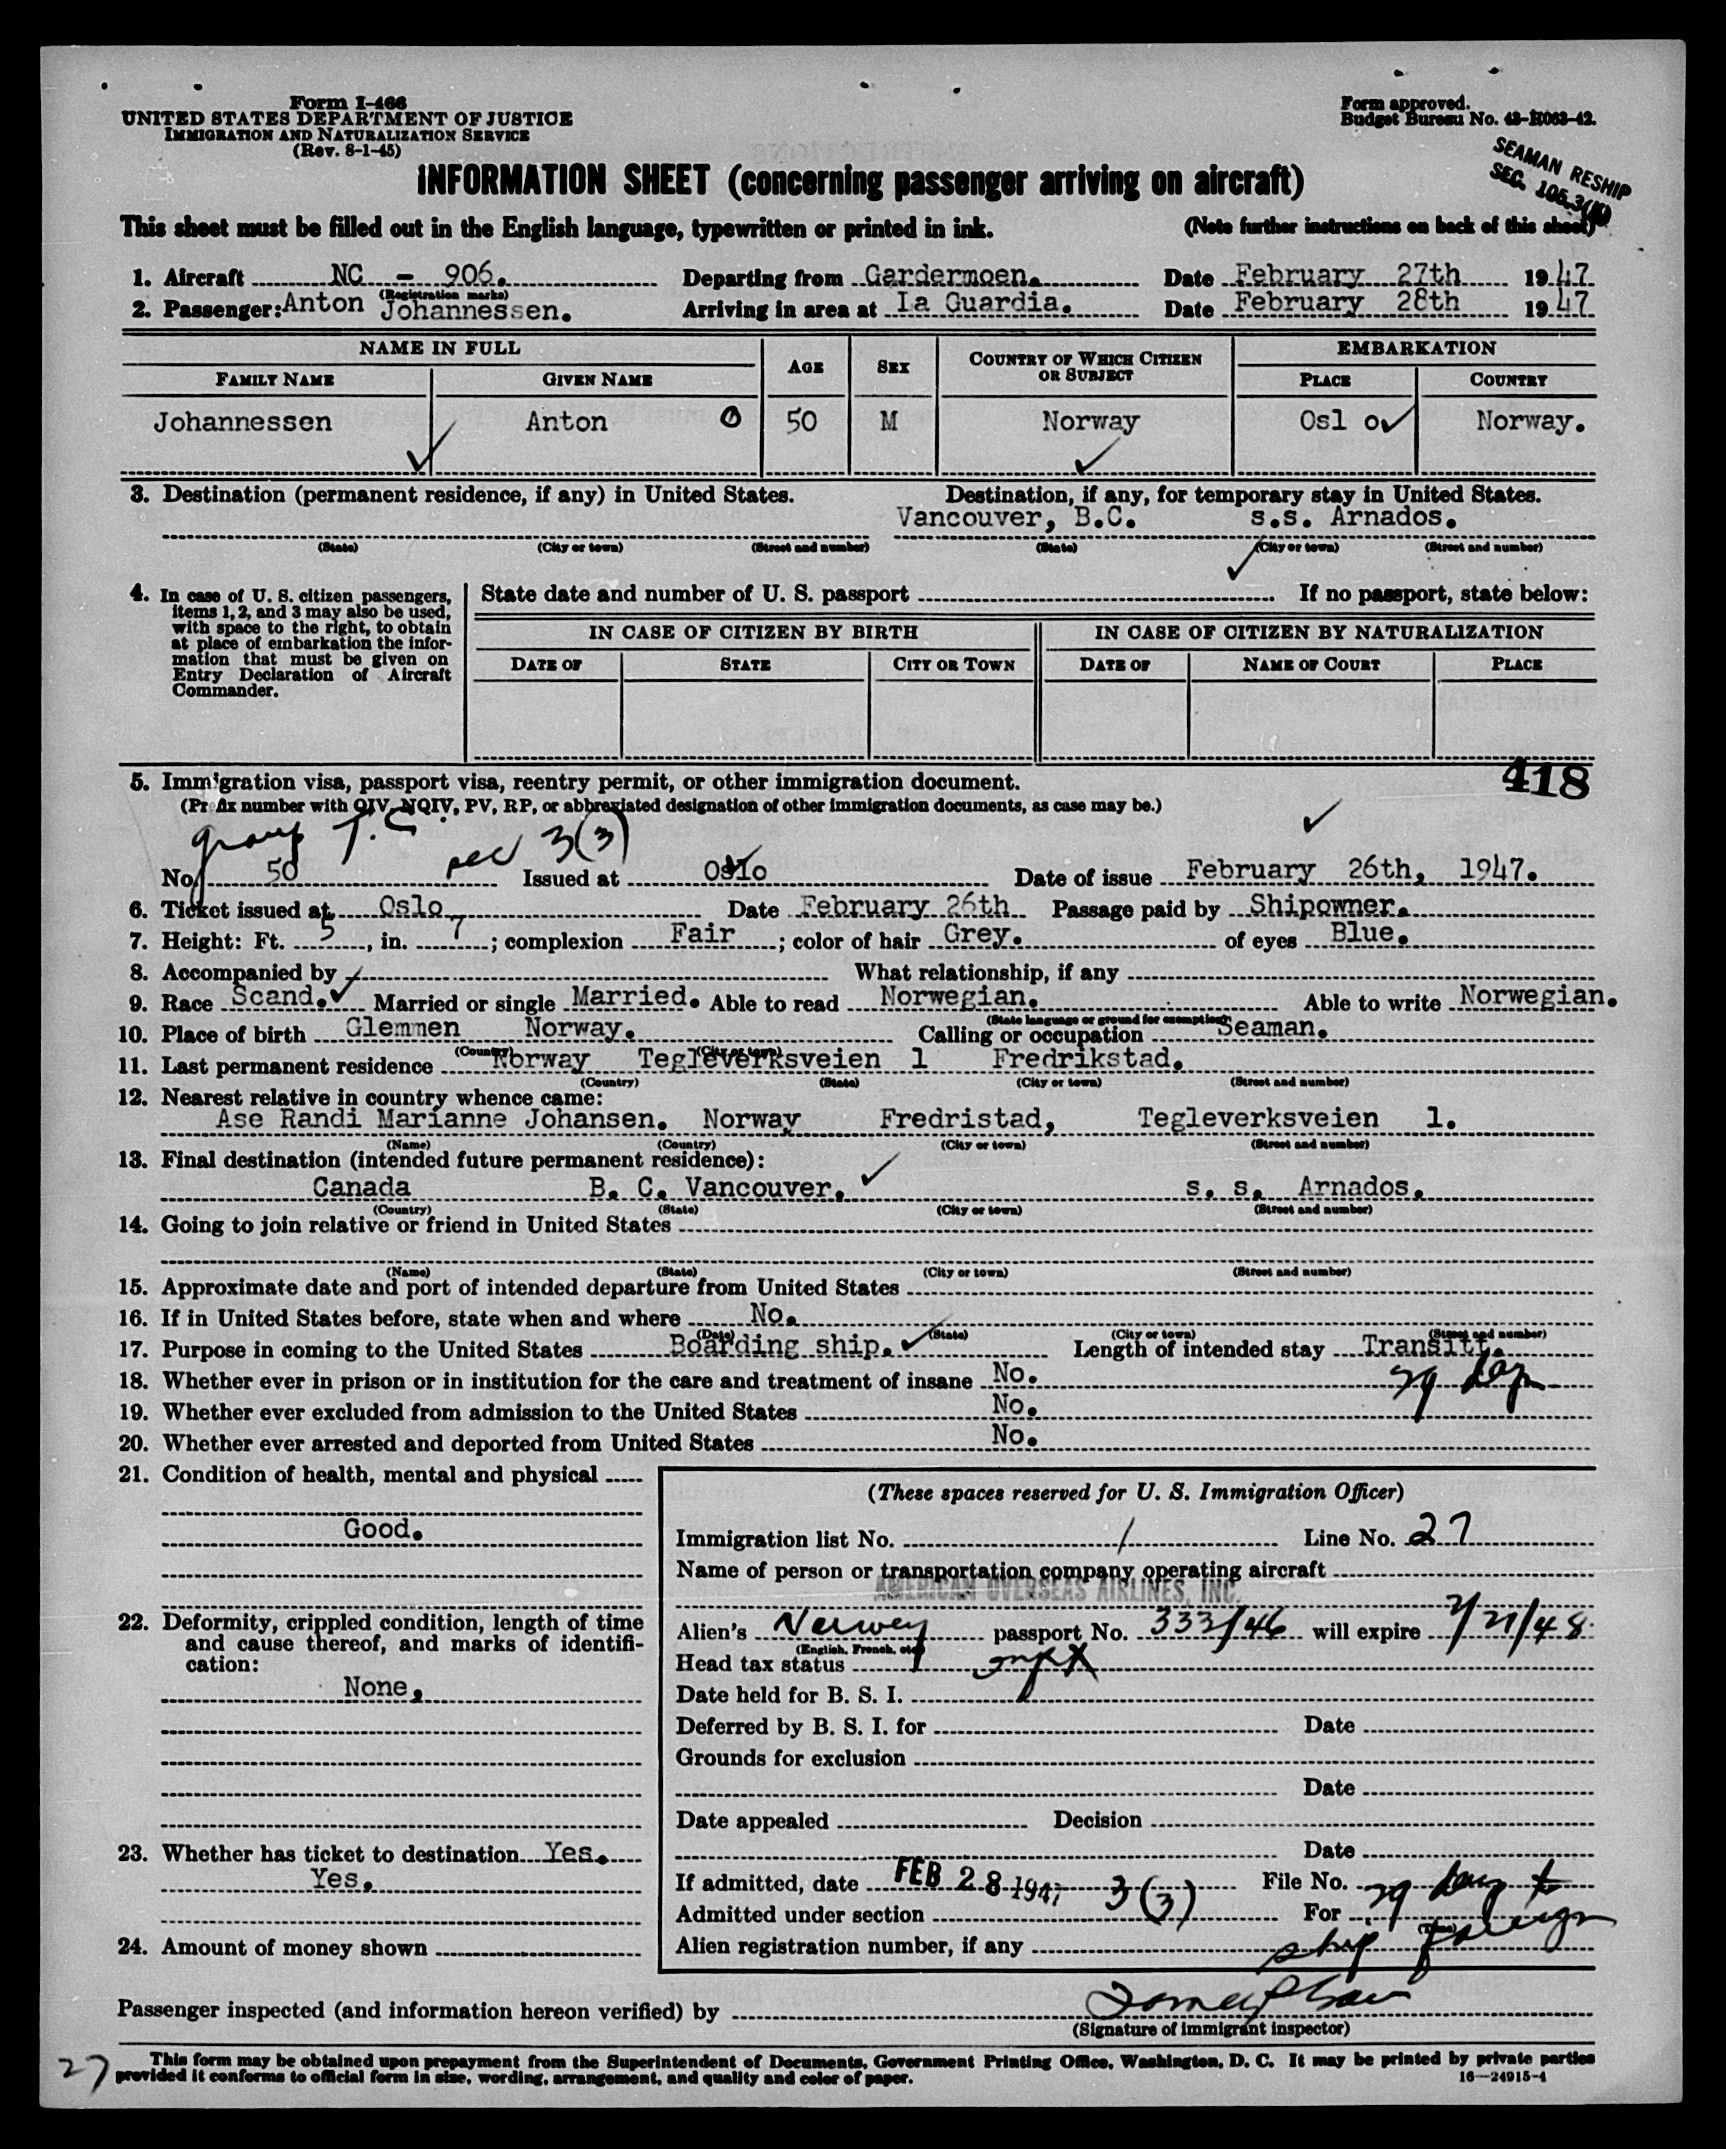 Form I-466
UNITED STATES DEPARTMENT OF JUSTICE
IMMIGRATION AND NATURALIZATION SERVICE
(Rev. 8-1-45)
Form approved.
Budget Bureau No. 43-R063-42.
SEAMAN RESHIP
SEC. 105.3(K)
INFORMATION SHEET (concerning passenger arriving on aircraft)
This sheet must be filled out in the English language, typewritten or printed in ink. (Note further instructions on back of this sheet)
1. Aircraft NC - 906. Departing from Gardermoen. Date February 27th 1947
(Registration marks)
2. Passenger: Anton Johannessen. Arriving in area at La Guardia. Date February 28th 1947
NAME IN FULL AGE SEX COUNTRY OF WHICH CITIZEN OR SUBJECT EMBARKATION
FAMILY NAME GIVEN NAME PLACE COUNTRY
Johannessen Anton 0 50 M Norway Osl o Norway.
3. Destination (permanent residence, if any) in United States. Destination, if any, for temporary stay in United States.
Vancouver, B.C. s.s. Arnados.
(State) (City or town) (Street and number) (State) (City or town) (Street and number)
4. In case of U. S. citizen passengers, items 1, 2, and 3 may also be used, with space to the right, to obtain at place of embarkation the information that must be given on Entry Declaration of Aircraft Commander.
State date and number of U. S. passport If no passport, state below:
IN CASE OF CITIZEN BY BIRTH IN CASE OF CITIZEN BY NATURALIZATION
DATE OF STATE CITY OR TOWN DATE OF NAME OF COURT PLACE
418
5. Immigration visa, passport visa, reentry permit, or other immigration document.
(Prefix number with QIV, NQIV, PV, RP, or abbreviated designation of other immigration documents, as case may be.)
group T.C. sec 3(3)
No. 50 Issued at Oslo Date of issue February 26th, 1947.
6. Ticket issued at Oslo Date February 26th Passage paid by Shipowner.
7. Height: Ft. 5, in. 7; complexion Fair; color of hair Grey. of eyes Blue.
8. Accompanied by What relationship, if any
9. Race Scand. Married or single Married. Able to read Norwegian. Able to write Norwegian.
(State language or ground for exemption)
10. Place of birth Glemmen Norway. Calling or occupation Seaman.
(Country) (City or town)
11. Last permanent residence Norway Tegleverksveien 1 Fredrikstad.
(Country) (State) (City or town) (Street and number)
12. Nearest relative in country whence came:
Ase Randi Marianne Johansen. Norway Fredristad, Tegleverksveien 1.
(Name) (Country) (City or town) (Street and number)
13. Final destination (intended future permanent residence):
Canada B. C. Vancouver. s. s. Arnados.
(Country) (State) (City or town) (Street and number)
14. Going to join relative or friend in United States
(Name) (State) (City or town) (Street and number)
15. Approximate date and port of intended departure from United States
16. If in United States before, state when and where No.
(Date) (State) (City or town) (Street and number)
17. Purpose in coming to the United States Boarding ship. Length of intended stay Transitt.
18. Whether ever in prison or in institution for the care and treatment of insane No. 29 days
19. Whether ever excluded from admission to the United States No.
20. Whether ever arrested and deported from United States No.
21. Condition of health, mental and physical
Good.
22. Deformity, crippled condition, length of time and cause thereof, and marks of identification:
None.
23. Whether has ticket to destination Yes.
Yes.
24. Amount of money shown
(These spaces reserved for U. S. Immigration Officer)
Immigration list No. 1 Line No. 27
Name of person or transportation company operating aircraft
AMERICAN OVERSEAS AIRLINES, INC.
Alien's Norway passport No. 333/46 will expire 2/21/48
(English, French, etc.)
Head tax status
Date held for B. S. I.
Deferred by B. S. I. for Date
Grounds for exclusion
Date
Date appealed Decision
Date
If admitted, date FEB 28 1947 File No.
Admitted under section 3(3) For 29 days to
(Time)
Alien registration number, if any ship foreign
Passenger inspected (and information hereon verified) by
(Signature of immigrant inspector)
27
This form may be obtained upon prepayment from the Superintendent of Documents, Government Printing Office, Washington, D. C. It may be printed by private parties
provided it conforms to official form in size, wording, arrangement, and quality and color of paper.
16—24915-4